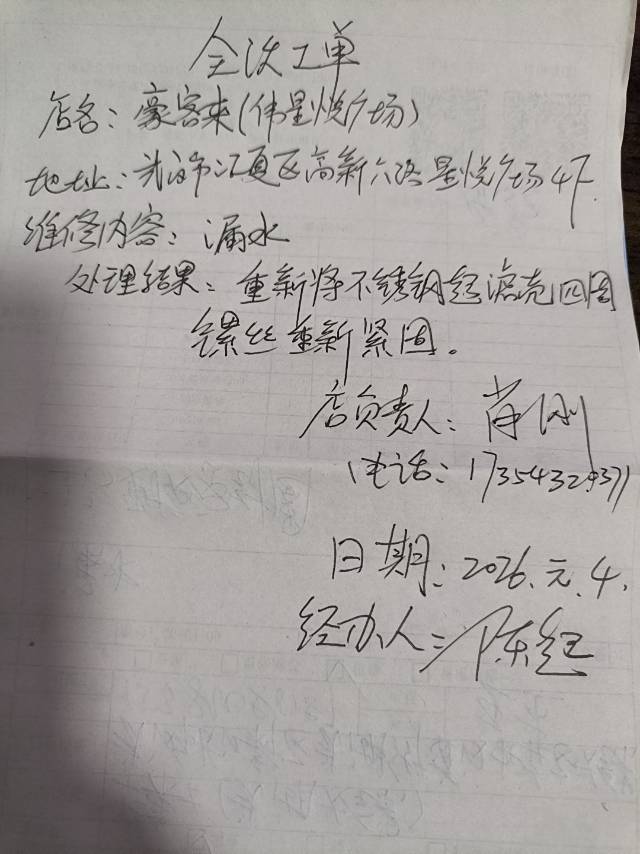 全汰工单
店名：豪客来(伟星悦广场)
地址：武汉市江夏区高新六路星悦广场4F.
维修内容：漏水
处理结果：重新将不锈钢超滤壳四周
镙丝重新紧固。
店负责人：肖刚
电话：17354329371
日期：2026.元.4.
经办人：陈